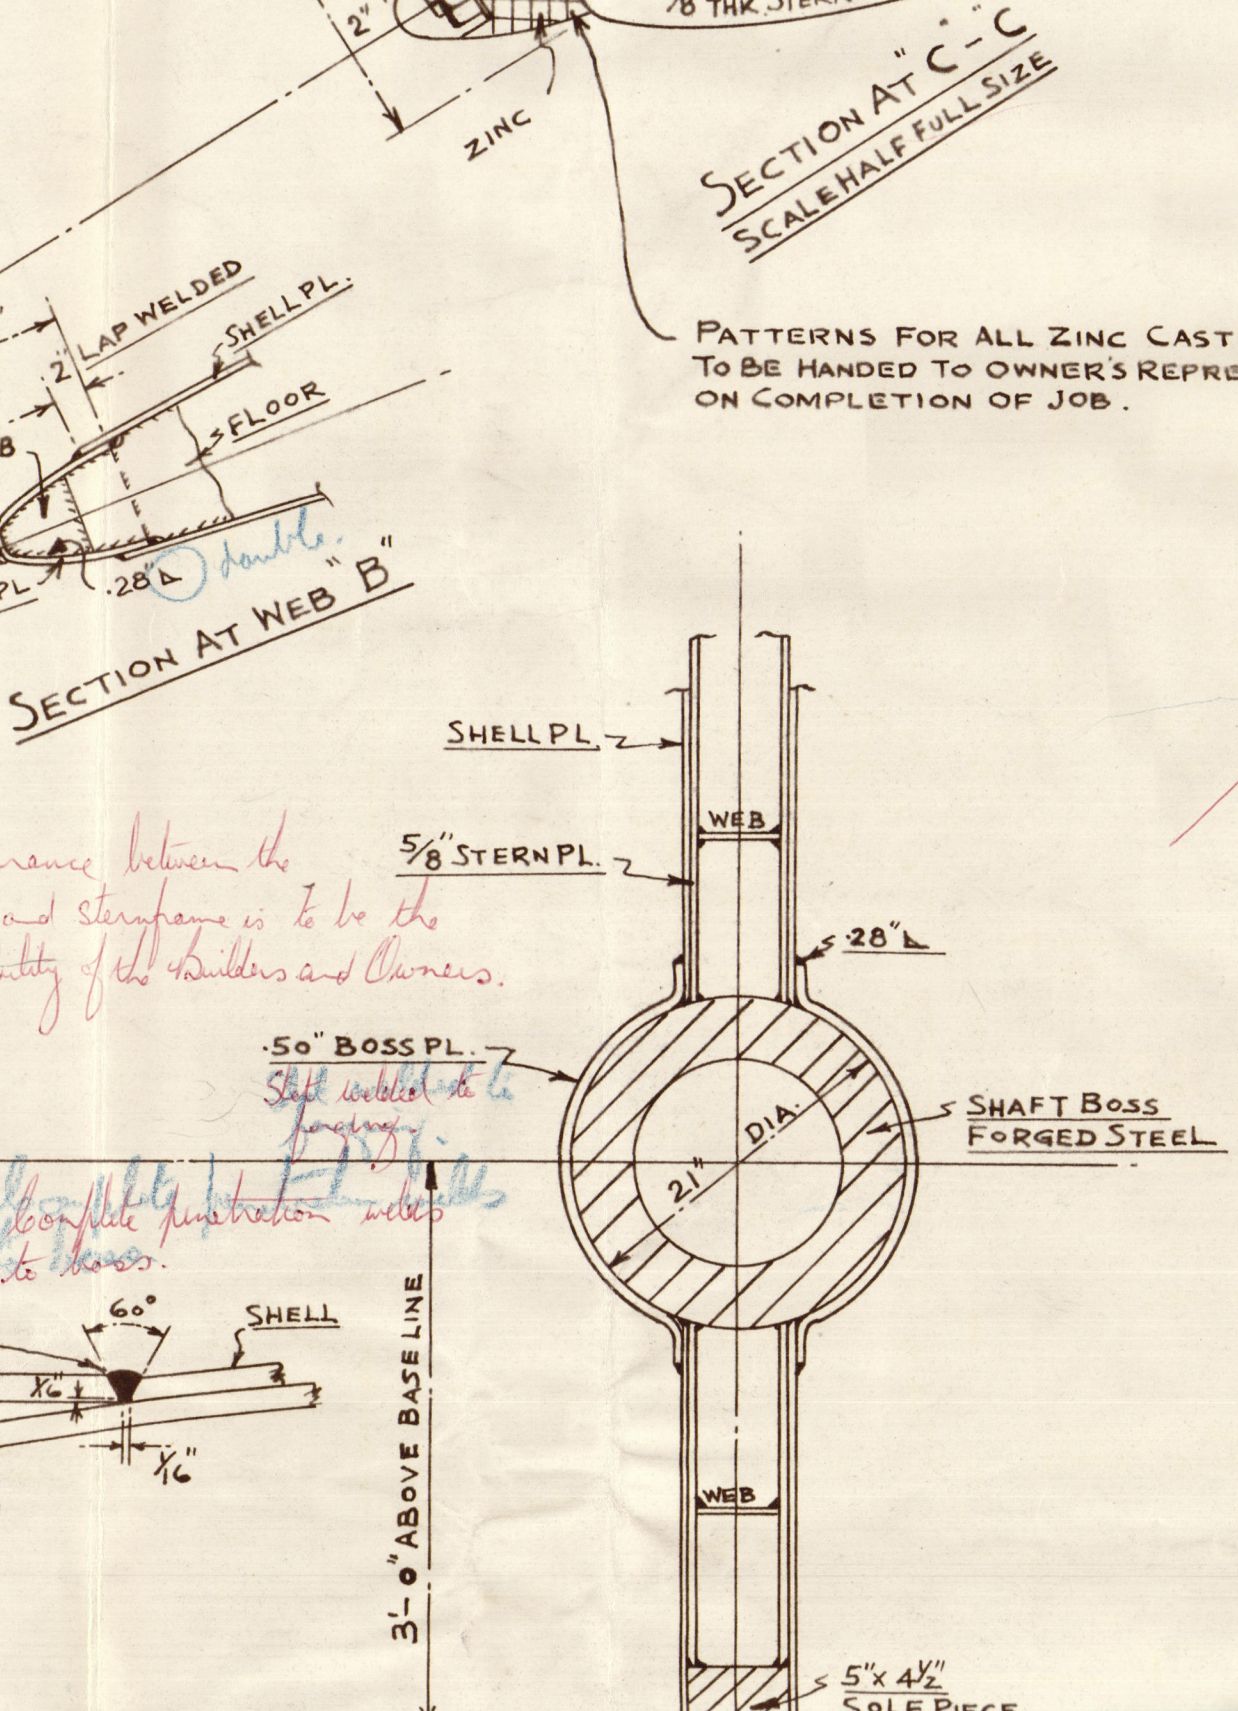 2"
ZINC
SECTION AT "C - C"
SCALE HALF FULL SIZE
PATTERNS FOR ALL ZINC CAST
TO BE HANDED TO OWNER'S REPRE
ON COMPLETION OF JOB.
2" LAP WELDED
SHELL PL.
FLOOR
B
PL
.28"
double.
SECTION AT WEB "B"
SHELL PL.
WEB
5/8" STERN PL.
.28"
between the
and sternframe is to be the
of the Builders and Owners.
.50" BOSS PL.
Slot welded to
forging.
SHAFT BOSS
FORGED STEEL
21" DIA.
Complete penetration welds
to boss.
60°
SHELL
1/16"
1/16"
3'-0" ABOVE BASE LINE
WEB
5" x 4 1/2"
SOLE PIECE